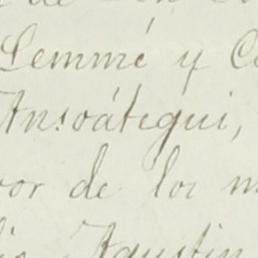 Lemmé y C
Ansoátegui,
or de los m
Agustin